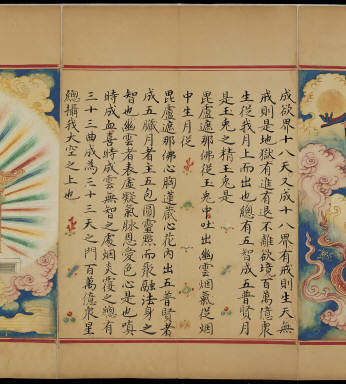 成欲界十八天又成十八界有戒則生天無
戒則是地獄有進有退不離欲境百萬億衆
生從我月上而出也總有五智成五普賢月
是玉兎之精玉兎是
毘盧遮那佛心從玉兎中吐出幽雲烟氣從烟
中生月從
毘盧遮那佛心胸蓮藏心花內出五普賢者
成五臟月者主五包圓靈照而飛融法身之
智也幽雲者表虛凝氣脉恩愛色心是也嗔
時成血喜時成雲無智之處烟炎覆之總有
三十三曲成為三十三天之門百萬億衆星
總攝我太空之上也